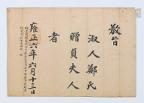 敎旨
淑人鄭氏
贈貞夫人
者
雍正六年六月十三日